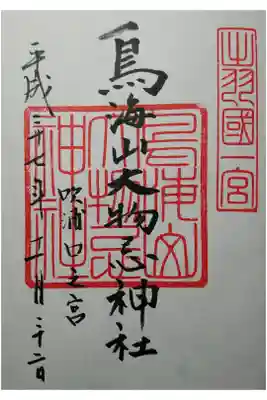 出羽國一宮
鳥海山大物忌神社
鳥海山
大物忌
神社
吹浦口之宮
平成二十七年十一月二十二日